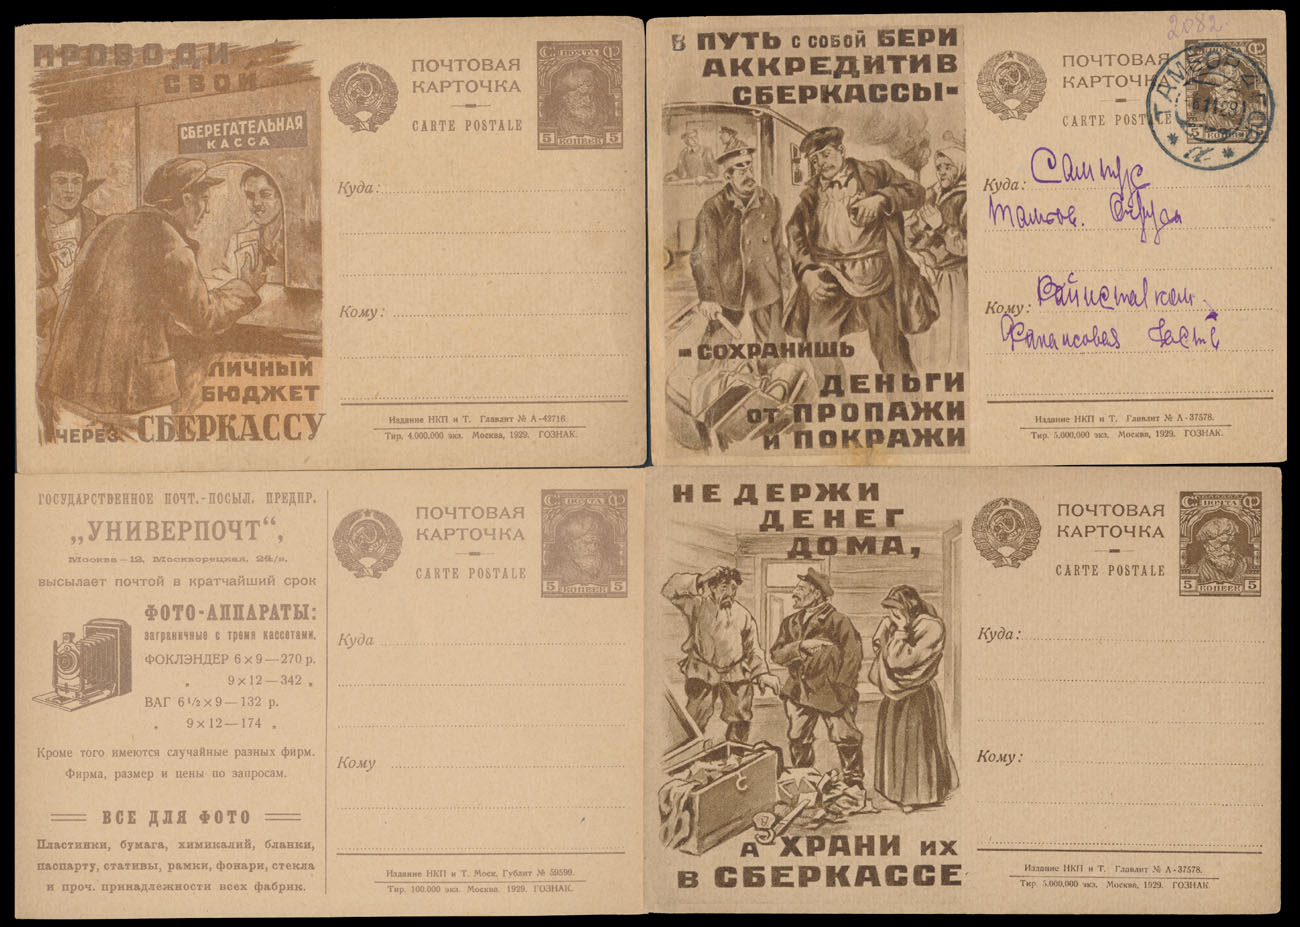 ПРОВОДИ
СВОЙ
СБЕРЕГАТЕЛЬНАЯ
КАССА
ЛИЧНЫЙ
БЮДЖЕТ
ЧЕРЕЗ СБЕРКАССУ
ПОЧТОВАЯ
КАРТОЧКА
CARTE POSTALE
ПОЧТА
5 КОПЕЕК 5
Куда:
Кому:
Издание НКП и Т. Главлит № А-42716.
Тир. 4.000.000 экз. Москва, 1929. ГОЗНАК.
В ПУТЬ С СОБОЙ БЕРИ
АККРЕДИТИВ
СБЕРКАССЫ-
-СОХРАНИШЬ
ДЕНЬГИ
ОТ ПРОПАЖИ
И ПОКРАЖИ
2082.
ПОЧТОВАЯ
КАРТОЧКА
CARTE POSTALE
Куда: Сампур
Тамбов. Округа
Кому:
Финансовая часть
Издание НКП и Т. Главлит № А-37578.
Тир. 5.000.000 экз. Москва, 1929. ГОЗНАК.
ГОСУДАРСТВЕННОЕ ПОЧТ.-ПОСЫЛ. ПРЕДПР.
„УНИВЕРПОЧТ“,
Москва—12, Москворецкая, 26/в.
высылает почтой в кратчайший срок
ФОТО-АППАРАТЫ:
заграничные с тремя кассетами.
ФОКЛЭНДЕР 6×9—270 р.
„ 9×12—342 „
ВАГ 6½×9—132 р.
„ 9×12—174 „
Кроме того имеются случайные разных фирм.
Фирма, размер и цены по запросам.
ВСЕ ДЛЯ ФОТО
Пластинки, бумага, химикалий, бланки,
паспарту, стативы, рамки, фонари, стекла
и проч. принадлежности всех фабрик.
ПОЧТОВАЯ
КАРТОЧКА
CARTE POSTALE
ПОЧТА
5 КОПЕЕК 5
Куда
Кому
Издание НКП и Т. Моск. Гублит № 59599.
Тир. 100.000 экз. Москва. 1929. ГОЗНАК.
НЕ ДЕРЖИ
ДЕНЕГ
ДОМА,
А ХРАНИ ИХ
В СБЕРКАССЕ
ПОЧТОВАЯ
КАРТОЧКА
CARTE POSTALE
ПОЧТА
5 КОПЕЕК 5
Куда:
Кому:
Издание НКП и Т. Главлит № А-37578.
Тир. 5.000.000 экз. Москва, 1929. ГОЗНАК.